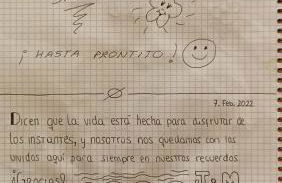 ¡HASTA PRONTITO!
7. Feb. 2022
Dicen que la vida está hecha para disfrutar de
los instantes, y nosotros nos quedamos con los
vividos aquí para siempre en nuestros recuerdos
¡Gracias! J & M